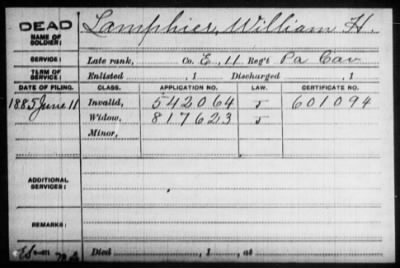 DEAD
NAME OF SOLDIER: Lamphier, William H.
SERVICE: Late rank, Co. E, 11 Reg't Pa Cav
TERM OF SERVICE: Enlisted , 1 Discharged , 1
DATE OF FILING. CLASS. APPLICATION NO. LAW. CERTIFICATE NO.
1885 June 11 Invalid, 542064 J 601094
Widow, 817623 J
Minor,
ADDITIONAL SERVICES:
REMARKS:
Died , 1 , at